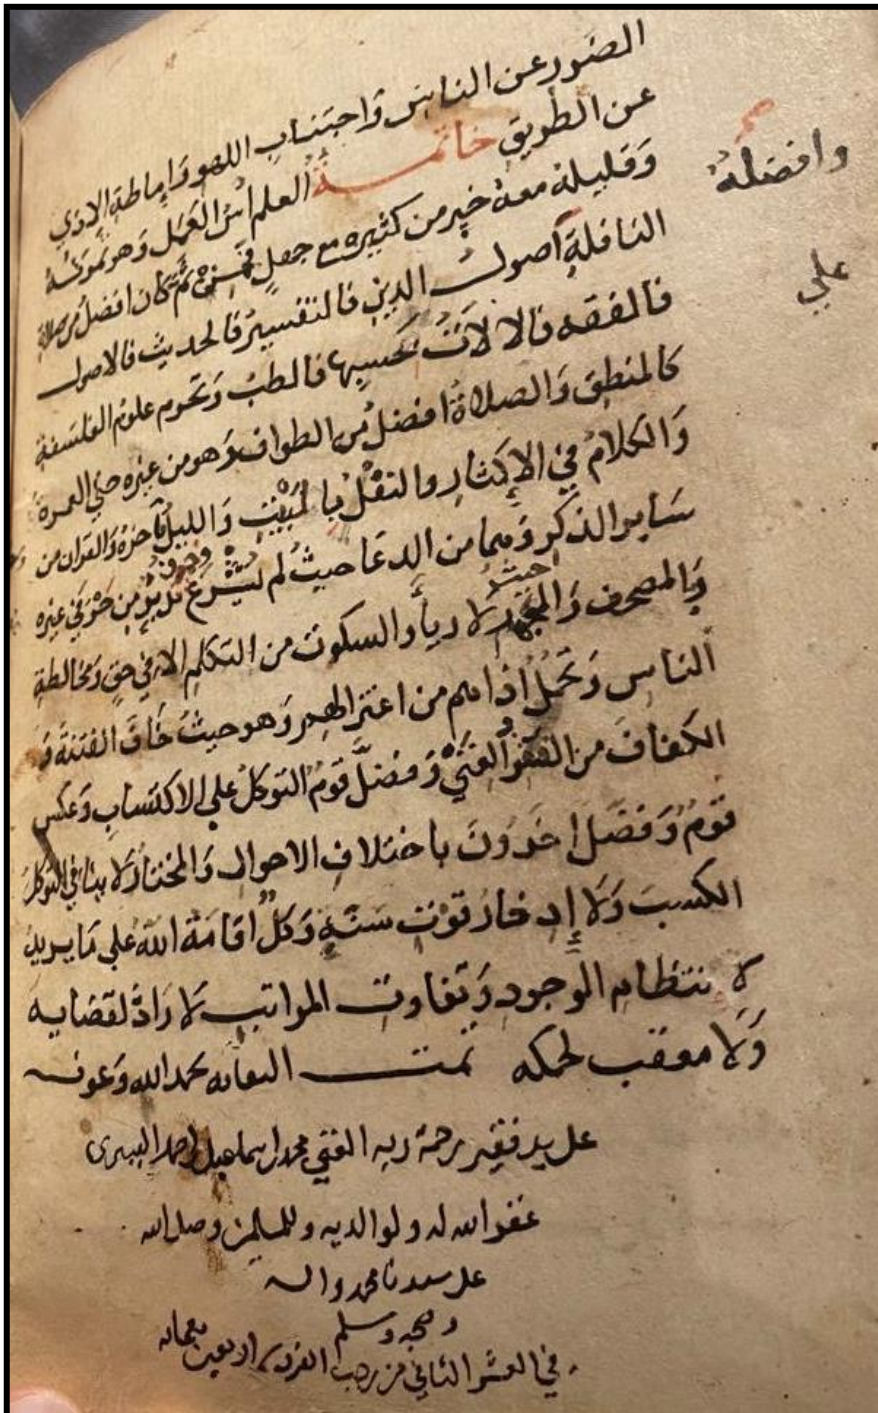 الضور عن الناس وَاجتناب اللهو وَاماطة الاذي
عن الطريق خاتمة العلم اسُّ العَمَل وَهو ثمرته
وَقليله معهُ خير من كثيره مع جهل فمن ثم كان افضل من صلاة
النافلة اصول الدين فالتفسير فالحديث فالاصول
فالفقه فالالات بحسبها فالطب وَتحرم علوم الفلسفة
كالمنطق وَالصلاة افضل من الطواف وَهو من غيره حتي العمرة
وَالكلام في الإكثار والنفل بالبيت وَالليل فآخره وَالقران من
ساير الذكر وَهما من الدعا حيث لم يشرع وحرف تدبر من حرفي غيره
وَبالمصحف وَالجهر حيث لا ريا وَالسكوت من التكلم الا في حق وَمخالطة
الناس وَتحمل اذاهم من اعتزالهم وَهو حيث خاف الفتنة وَ
الكفاف من الفقر وَالغني وَفضل قوم التوكل علي الاكتساب وَعكس
قوم وَفضل اخرون باختلاف الاحوال وَالمختار لا ينافي التوكل
الكسب وَلا إدخار قوت سنة وَكل اقامة الله علي ما يريد
لانتظام الوجود وَتفاوت المراتب لا رَادَّ لقضايه
وَلا معقب لحكمه تمت النقايه بحمد الله وَعونه
على يد فقير رحمة ربه الغني محمد اسماعيل احمد
غفر الله له ولوالديه وللمسلمين وصلى الله
على سيدنا محمد واله
وصحبه وسلم
في العشر الثاني من رجب الفرد
وافضلهُ
علي